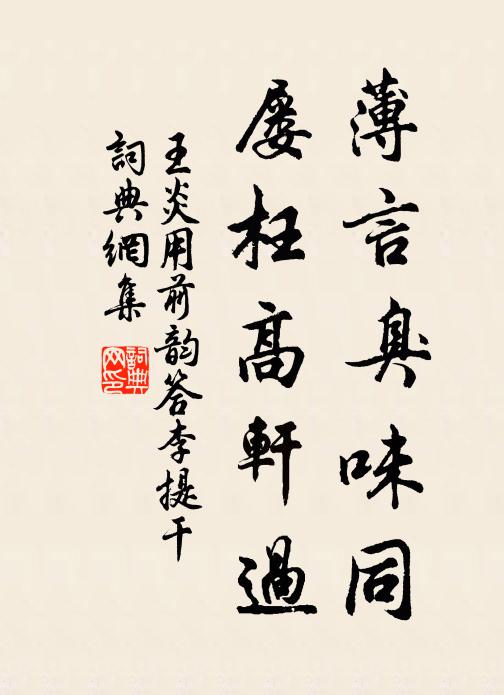 薄言臭味同
屢枉高軒過
王炎用前韵答李提干
詞典網集
詞典网印